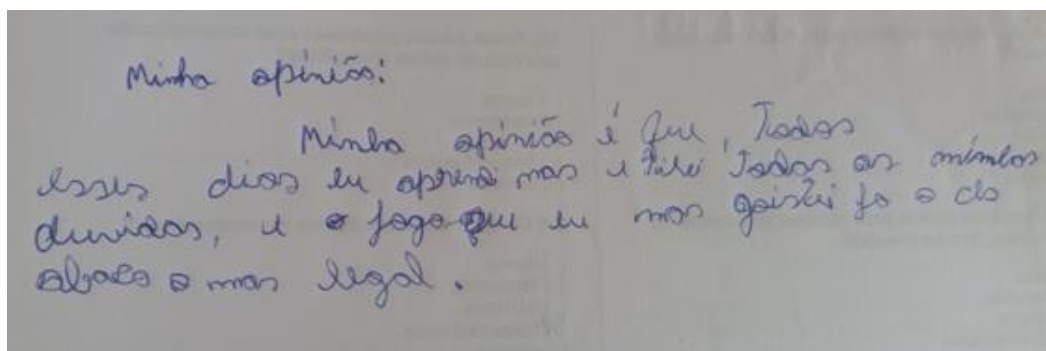 Minha opinião:
Minha opinião é que, Todos
esses dias eu aprendi mas e tirei Todas as minhas
duvidas, e o jogo que eu mas goistei fo o do
abaco o mas legal.